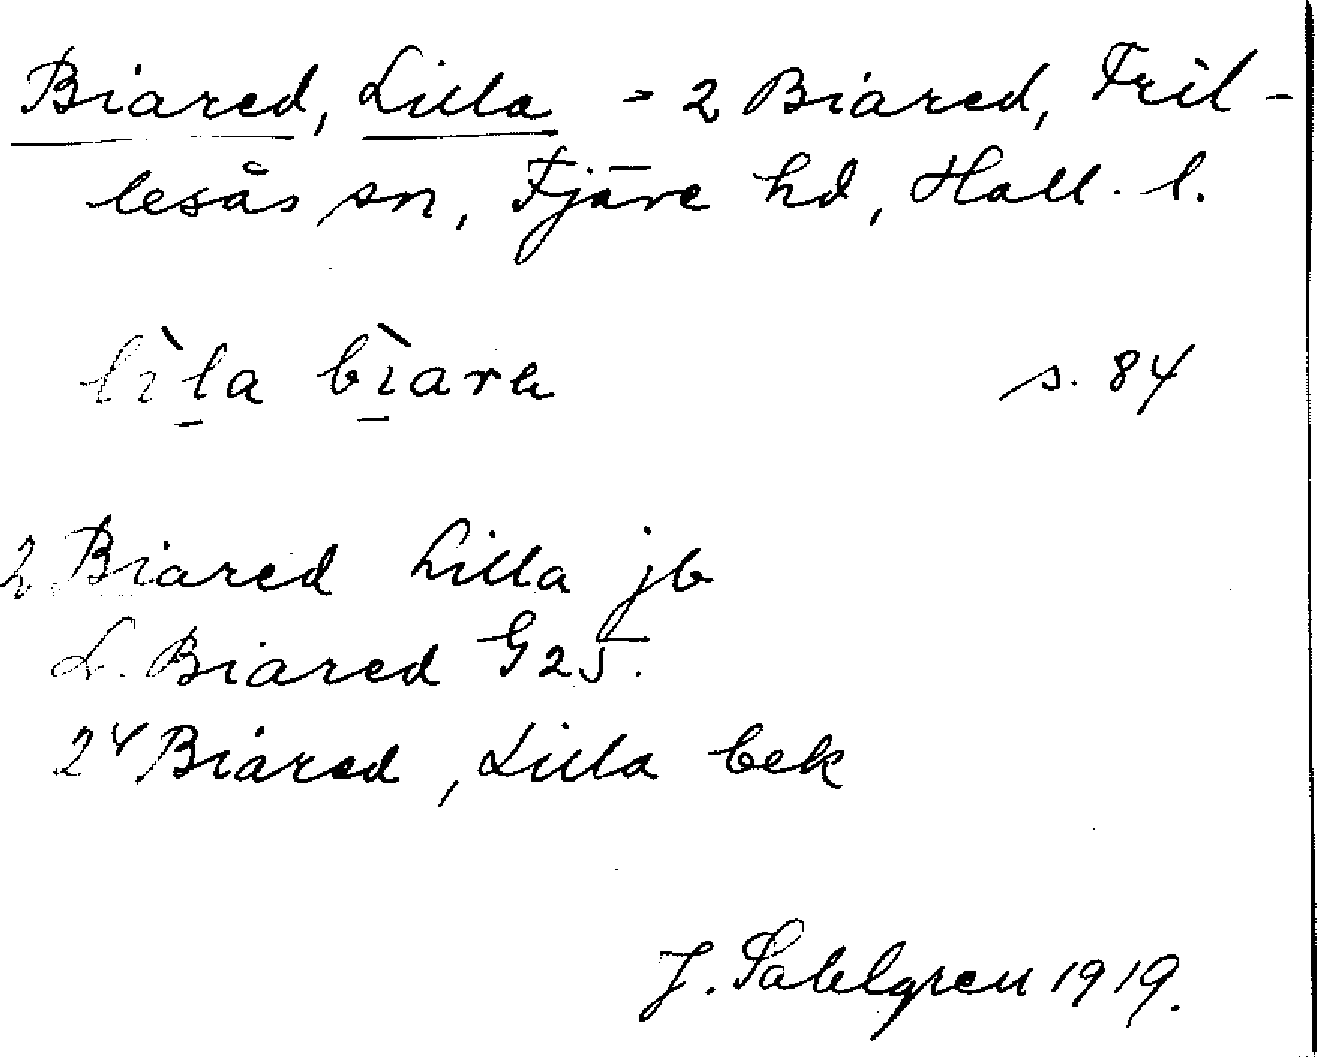 Biared, Lilla = 2 Biared, Fril-
lesås sn, Fjäre hd, Hall. l.
lìla bìara s. 84
2 Biared Lilla jb
L. Biared G25.
2 Biared, Lilla bek
J. Sahlgren 1919.